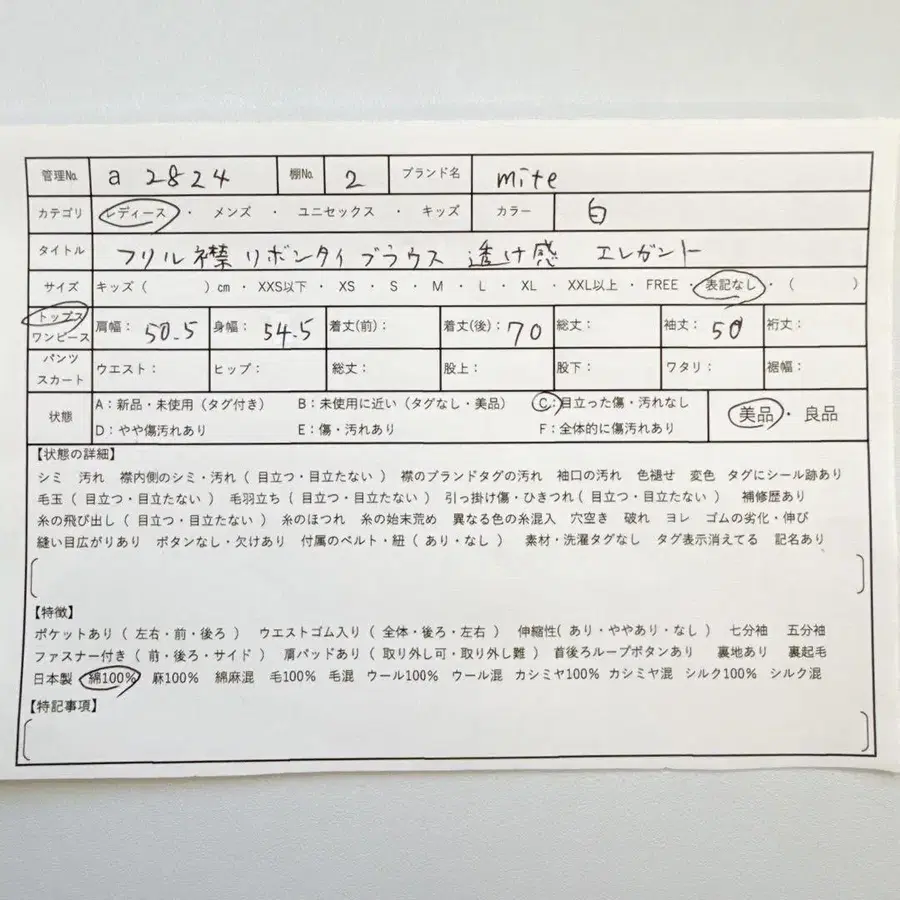 管理No. a 2824 棚No. 2 ブランド名 mite
カテゴリ レディース ・ メンズ ・ ユニセックス ・ キッズ カラー 白
タイトル フリル襟 リボンタイ ブラウス 透け感 エレガント
サイズ キッズ ( ) cm ・ XXS以下 ・ XS ・ S ・ M ・ L ・ XL ・ XXL以上 ・ FREE ・ 表記なし ・ ( )
トップス
ワンピース 肩幅: 50.5 身幅: 54.5 着丈(前): 着丈(後): 70 総丈: 袖丈: 50 裄丈:
パンツ
スカート ウエスト: ヒップ: 総丈: 股上: 股下: ワタリ: 裾幅:
状態 A:新品・未使用(タグ付き) B:未使用に近い(タグなし・美品) C:目立った傷・汚れなし 美品・良品
D:やや傷汚れあり E:傷・汚れあり F:全体的に傷汚れあり
【状態の詳細】
シミ 汚れ 襟内側のシミ・汚れ(目立つ・目立たない) 襟のブランドタグの汚れ 袖口の汚れ 色褪せ 変色 タグにシール跡あり
毛玉(目立つ・目立たない) 毛羽立ち(目立つ・目立たない) 引っ掛け傷・ひきつれ(目立つ・目立たない) 補修歴あり
糸の飛び出し(目立つ・目立たない) 糸のほつれ 糸の始末荒め 異なる色の糸混入 穴空き 破れ ヨレ ゴムの劣化・伸び
縫い目広がりあり ボタンなし・欠けあり 付属のベルト・紐(あり・なし) 素材・洗濯タグなし タグ表示消えてる 記名あり
【特徴】
ポケットあり(左右・前・後ろ) ウエストゴム入り(全体・後ろ・左右) 伸縮性(あり・ややあり・なし) 七分袖 五分袖
ファスナー付き(前・後ろ・サイド) 肩パッドあり(取り外し可・取り外し難) 首後ろループボタンあり 裏地あり 裏起毛
日本製 綿100% 麻100% 綿麻混 毛100% 毛混 ウール100% ウール混 カシミヤ100% カシミヤ混 シルク100% シルク混
【特記事項】